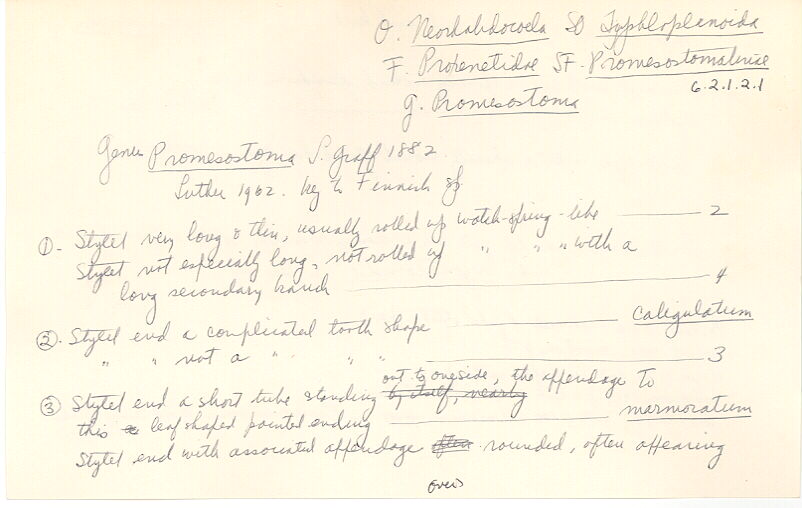 O. Neorhabdocoela SO Typhloplanoida
F. Proxenetidae SF. Promesostomatinae
6.2.1.2.1
G. Promesostoma
Genus Promesostoma S. Graff 1882
Luther 1962. Key to Finnish sp.
①. Stylet very long & thin, usually rolled up watch-spring-like ——— 2
Stylet not especially long, not rolled up " " " with a
long secondary branch ——— 4
②. Stylet end a complicated tooth shape ——— caligulatum
" " not a " " " ——— 3
③ Stylet end a short tube standing by itself, nearly out to one side, the appendage to
this leaf shaped pointed ending ——— marmoratum
Stylet end with associated appendage often rounded, often appearing
over